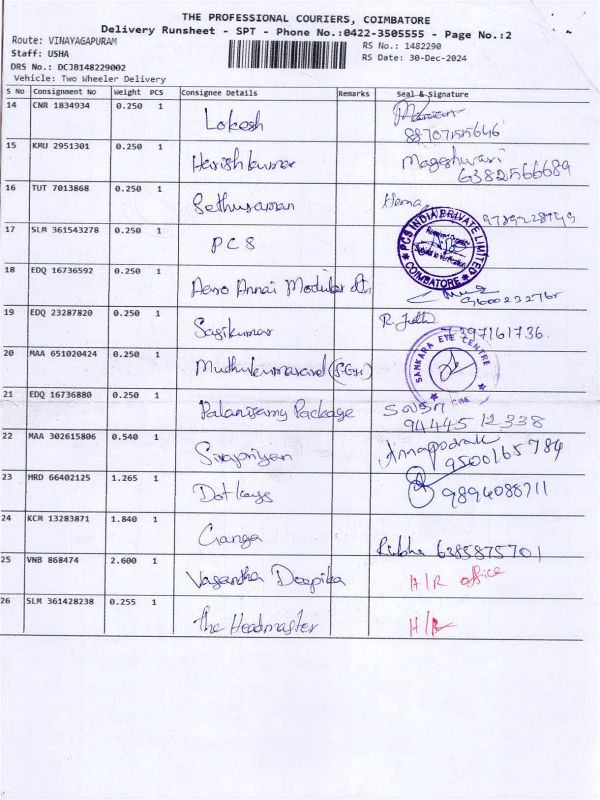 THE PROFESSIONAL COURIERS, COIMBATORE
Delivery Runsheet - SPT - Phone No.:0422-3505555 - Page No.:2
Route: VINAYAGAPURAM
RS No.: 1482290
Staff: USHA
RS Date: 30-Dec-2024
DRS No.: DCJB148229002
Vehicle: Two Wheeler Delivery
S No Consignment No Weight PCS Consignee Details Remarks Seal & Signature
14 CNR 1834934 0.250 1 Lokesh
15 KMU 2951301 0.250 1 Harish kumar Mageshwari
6382566689
16 TUT 7013868 0.250 1 Sethuraman Hema
17 SLM 361543278 0.250 1 PCS
PCS INDIA PRIVATE LIMITED
COIMBATORE
18 EDQ 16736592 0.250 1 Aero Annai Modular
9600232765
19 EDQ 23287820 0.250 1 Sasikumar
7397161736
20 MAA 651020424 0.250 1 SANKARA EYE CENTRE
CBE
21 EDQ 16736880 0.250 1 Palanisamy Package
94445 12338
22 MAA 302615806 0.540 1 Sivapriyan
9500165784
23 HRD 66402125 1.265 1 Dot kays 9894088711
24 KCM 13283871 1.840 1 Ganga
6385875701
25 VNB 868474 2.600 1 Vasantha Deepika H/R office
26 SLM 361428238 0.255 1 The Headmaster H/R